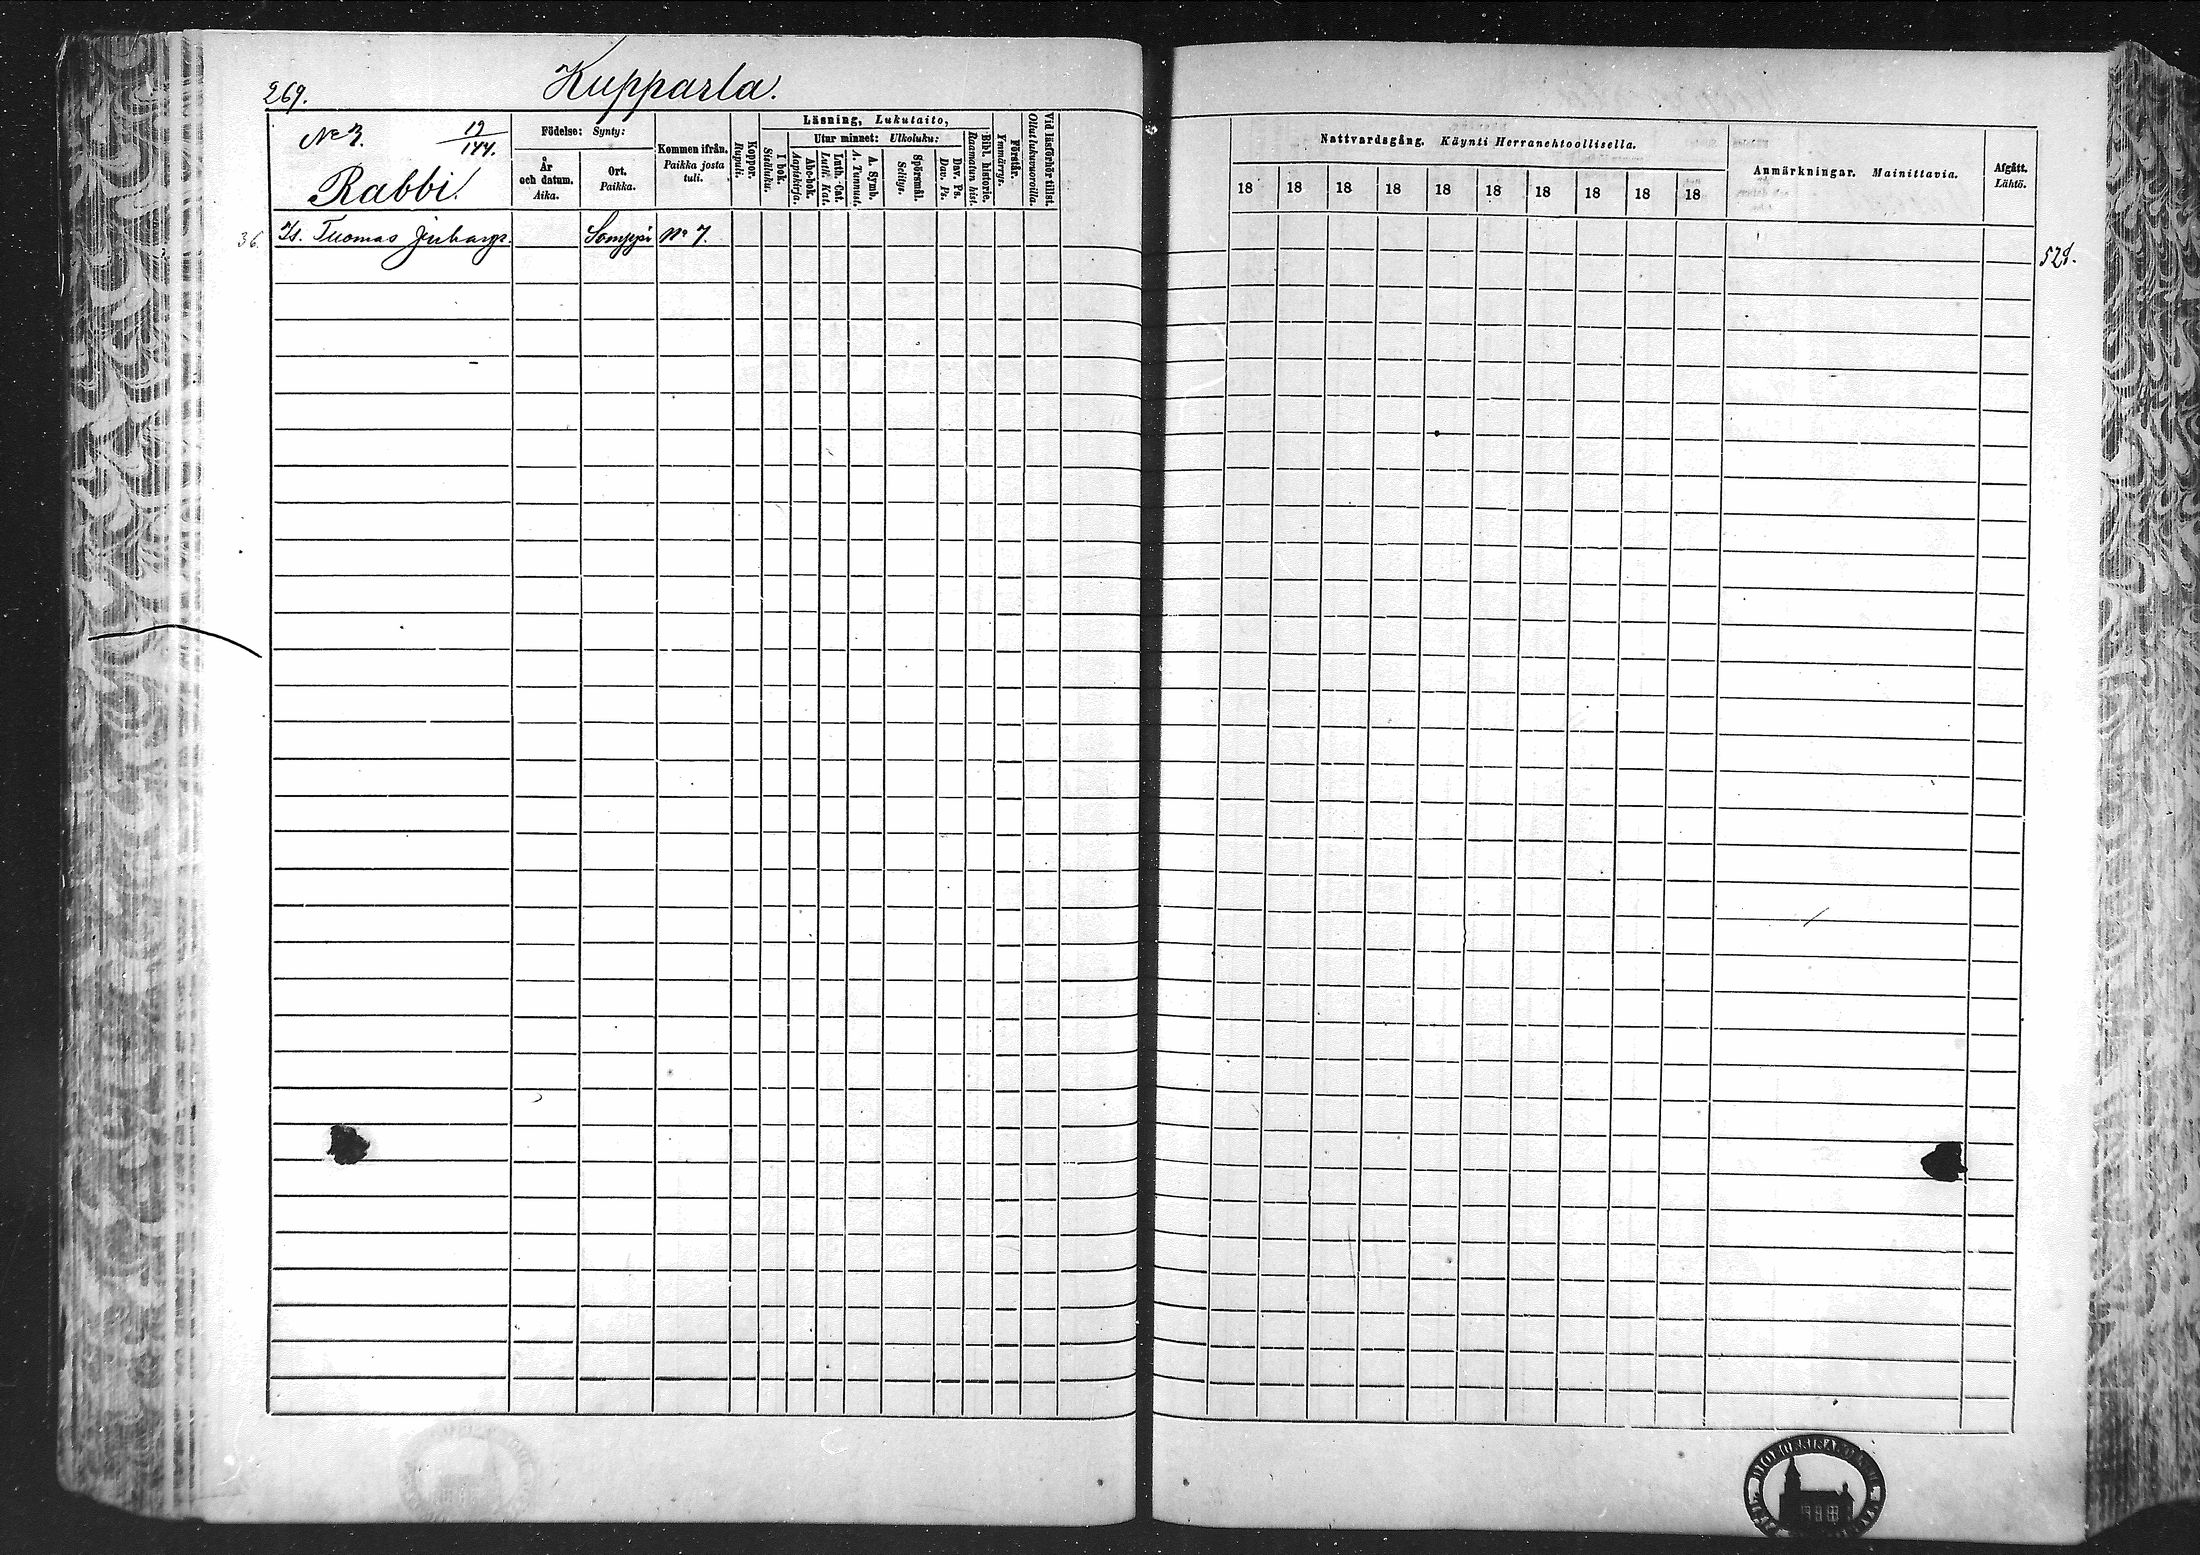 269.
Kupparla.
No 3. 19/144.
Rabbi.
Födelse: Synty:
År och datum. Aika.
Ort. Paikka.
Kommen ifrån. Paikka josta tuli.
Koppor. Rupuli.
Läsning, Lukutaito,
I bok. Sisäluku.
Utur minnet: Ulkoluku:
Abc-bok. Aapiskirja.
Luth. Cat. Luth. Kat.
A. Symb. A. Tunnust.
Spörsmål. Selitys.
Dav. Ps. Dav. Ps.
Bibl. historie. Raamatun hist.
Förstår. Ymmärrys.
Vid läsförhör tillst. Ollut lukuworoilla.
36. Is. Tuomas Somppi No 7.
Nattvardsgång. Käynti Herranehtoollisella.
18 18 18 18 18 18 18 18 18 18
Anmärkningar. Mainittavia.
Afgått. Lähtö.
528.